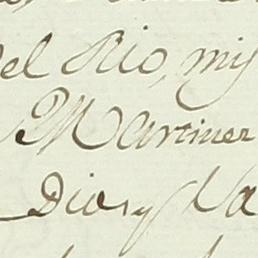 del Rio, mis
Martinez
Dios, y Va